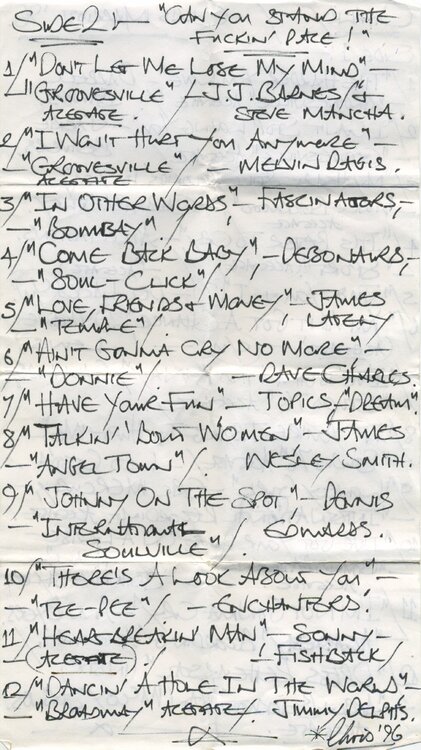 SIDE 2:- "CAN YOU STAND THE
FUCKIN' PACE!"
1/ "DON'T LET ME LOSE MY MIND" -
- "GROOVESVILLE" / - J.J. BARNES / &
ACETATE. STEVE MANCHA.
2/ "I WON'T HURT YOU ANYMORE" -
- "GROOVESVILLE" / - MELVIN DAVIS.
ACETATE
3/ "IN OTHER WORDS" - FASCINATORS, -
- "BOMBAY" /
4/ "COME BACK BABY", - DEBONAIRS, -
- "SOUL-CLICK" /
5/ "LOVE, FRIENDS & MONEY" - JAMES
- "TEMPLE". / LATELY
6/ "AIN'T GONNA CRY NO MORE" -
- "DONNIE" / - DAVE CHARLES.
7/ "HAVE YOUR FUN" - TOPICS - "DREAM".
8/ "TALKIN' 'BOUT WOMEN" - JAMES
- "ANGEL TOWN" / WESLEY SMITH.
9/ "JOHNNY ON THE SPOT" - DENNIS
- "INTERNATIONAL EDWARDS.
SOULVILLE" /
10/ "THERE'S A LOOK ABOUT YOU" -
- "TEE-PEE" / - ENCHANTERS.
11/ "HEARTBREAKIN' MAN" - SONNY -
- (ACETATE). / - FISHBACK /
12/ "DANCIN' A HOLE IN THE WORLD" -
- "BROADWAY" ACETATE / JIMMY DELPHS.
* Chris '96